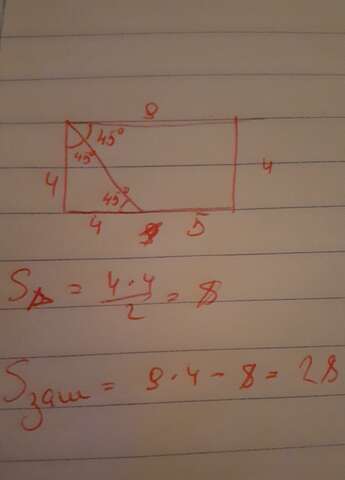 9
45°
45°
4
4
45°
4 5
S△ = 4·4/2 = 8
Sзаш = 9·4 - 8 = 28